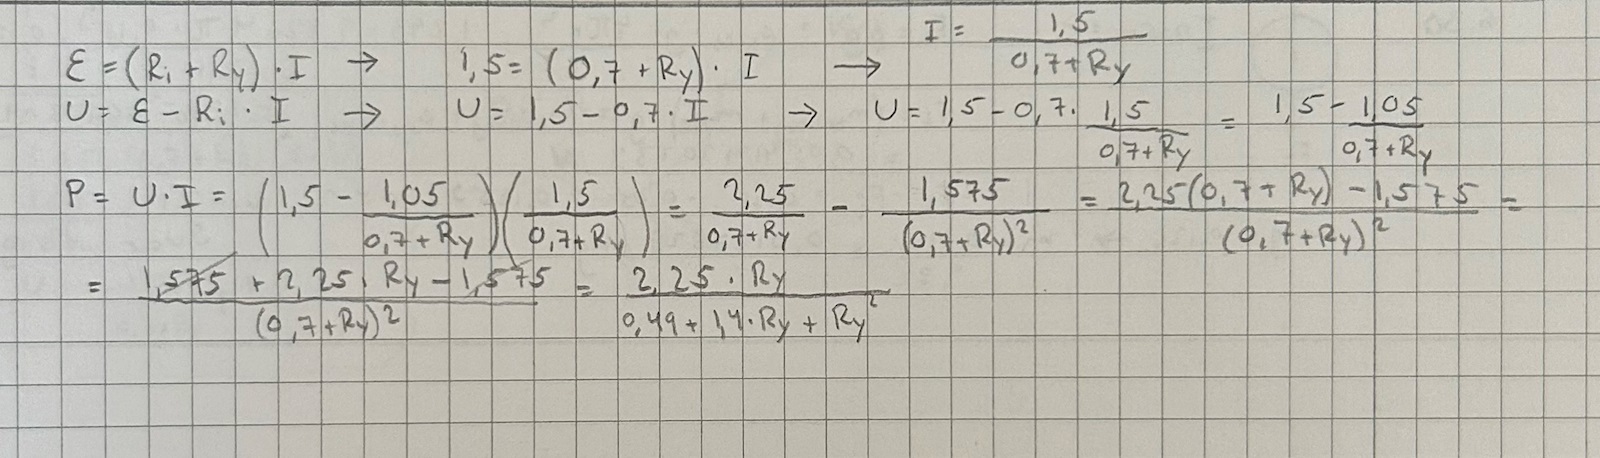 ε = (Ri + Ry) · I → 1,5 = (0,7 + Ry) · I → I = 1,5 / (0,7 + Ry)
U = ε - Ri · I → U = 1,5 - 0,7 · I → U = 1,5 - 0,7 · 1,5 / (0,7 + Ry) = 1,5 - 1,05 / (0,7 + Ry)
P = U · I = (1,5 - 1,05 / (0,7 + Ry)) (1,5 / (0,7 + Ry)) = 2,25 / (0,7 + Ry) - 1,575 / (0,7 + Ry)² = (2,25(0,7 + Ry) - 1,575) / (0,7 + Ry)² =
= (1,575 + 2,25 · Ry - 1,575) / (0,7 + Ry)² = 2,25 · Ry / (0,49 + 1,4 · Ry + Ry²)